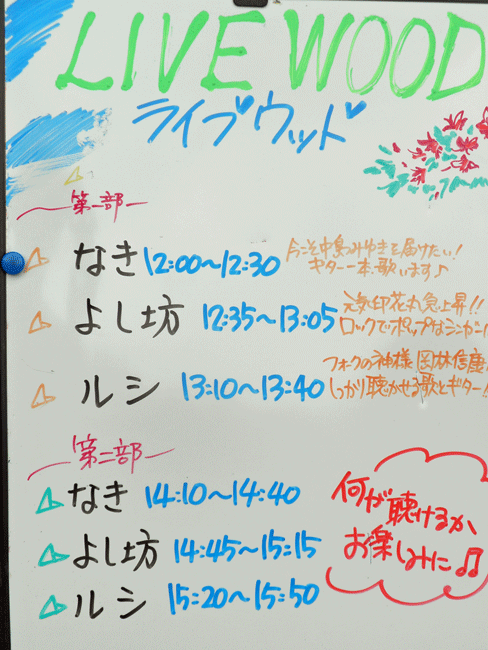 LIVE WOOD
ライブウッド
第一部
なき 12:00〜12:30 今こそ中島みゆきを届けたい!
ギター一本歌います♪
よし坊 12:35〜13:05 元気印花丸急上昇!!
ロックでポップなシンガー!
ルシ 13:10〜13:40 フォークの神様 岡林信康
しっかり聴かせる歌とギター!
第二部
なき 14:10〜14:40
よし坊 14:45〜15:15
ルシ 15:20〜15:50
何が聴けるか、
お楽しみに♫